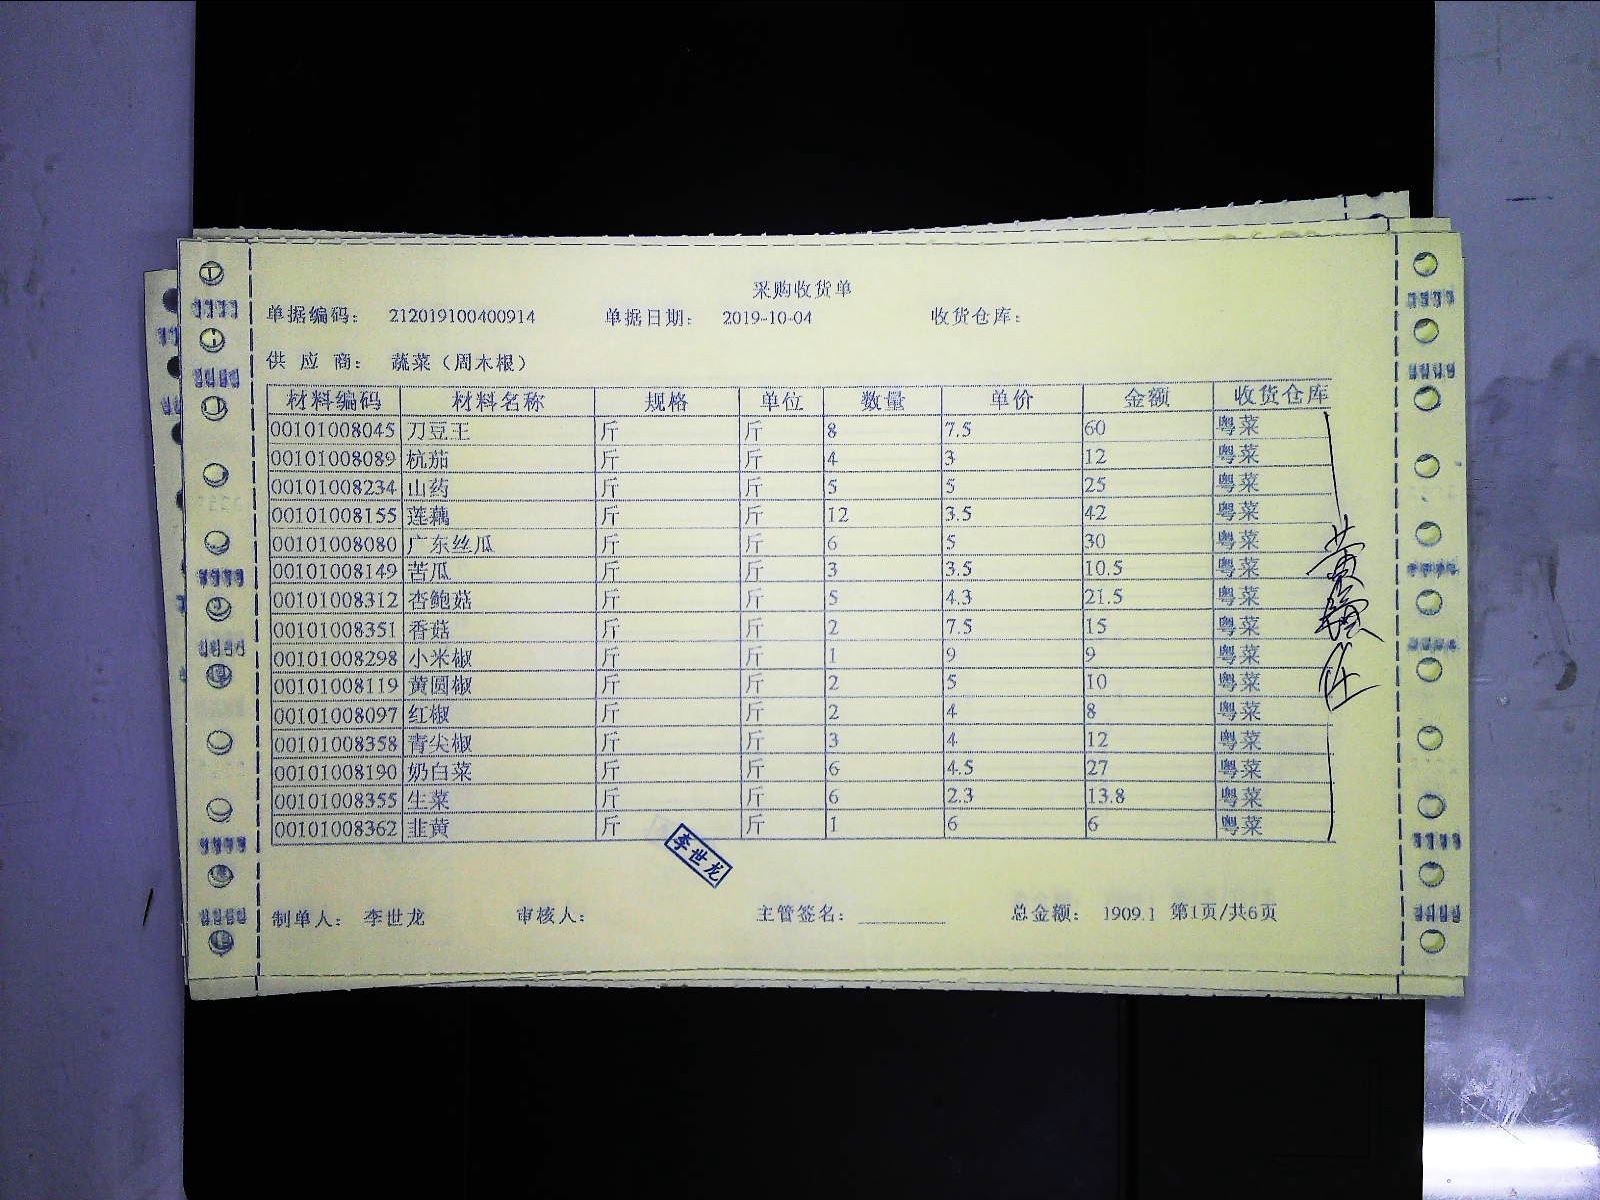 采购收货单
单据编码： 212019100400914 单据日期： 2019-10-04 收货仓库：
供 应 商： 蔬菜（周木根）
材料编码 材料名称 规格 单位 数量 单价 金额 收货仓库
00101008045 刀豆王 斤 斤 8 7.5 60 粤菜
00101008089 杭茄 斤 斤 4 3 12 粤菜
00101008234 山药 斤 斤 5 5 25 粤菜
00101008155 莲藕 斤 斤 12 3.5 42 粤菜
00101008080 广东丝瓜 斤 斤 6 5 30 粤菜
00101008149 苦瓜 斤 斤 3 3.5 10.5 粤菜
00101008312 杏鲍菇 斤 斤 5 4.3 21.5 粤菜
00101008351 香菇 斤 斤 2 7.5 15 粤菜
00101008298 小米椒 斤 斤 1 9 9 粤菜
00101008119 黄圆椒 斤 斤 2 5 10 粤菜
00101008097 红椒 斤 斤 2 4 8 粤菜
00101008358 青尖椒 斤 斤 3 4 12 粤菜
00101008190 奶白菜 斤 斤 6 4.5 27 粤菜
00101008355 生菜 斤 斤 6 2.3 13.8 粤菜
00101008362 韭黄 斤 斤 1 6 6 粤菜
李世龙
制单人： 李世龙 审核人： 主管签名： 总金额： 1909.1 第1页/共6页